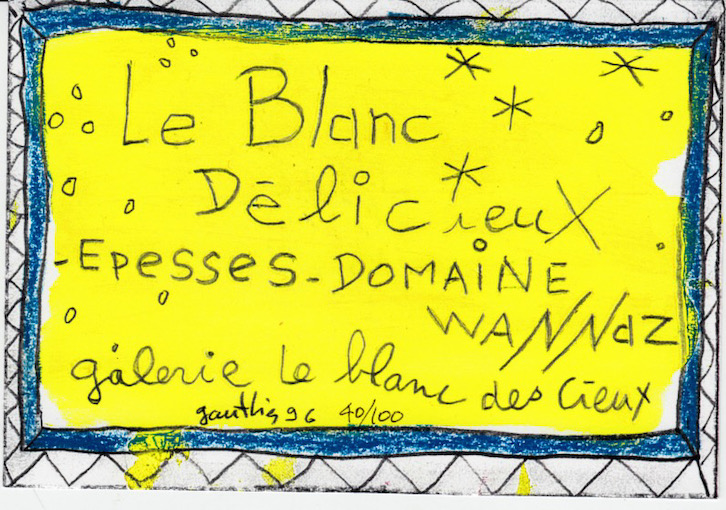 Le Blanc
Délicieux
-Epesses-DOMAINE
WANNAZ
galerie Le blanc des Cieux
gauthier 96 40/100